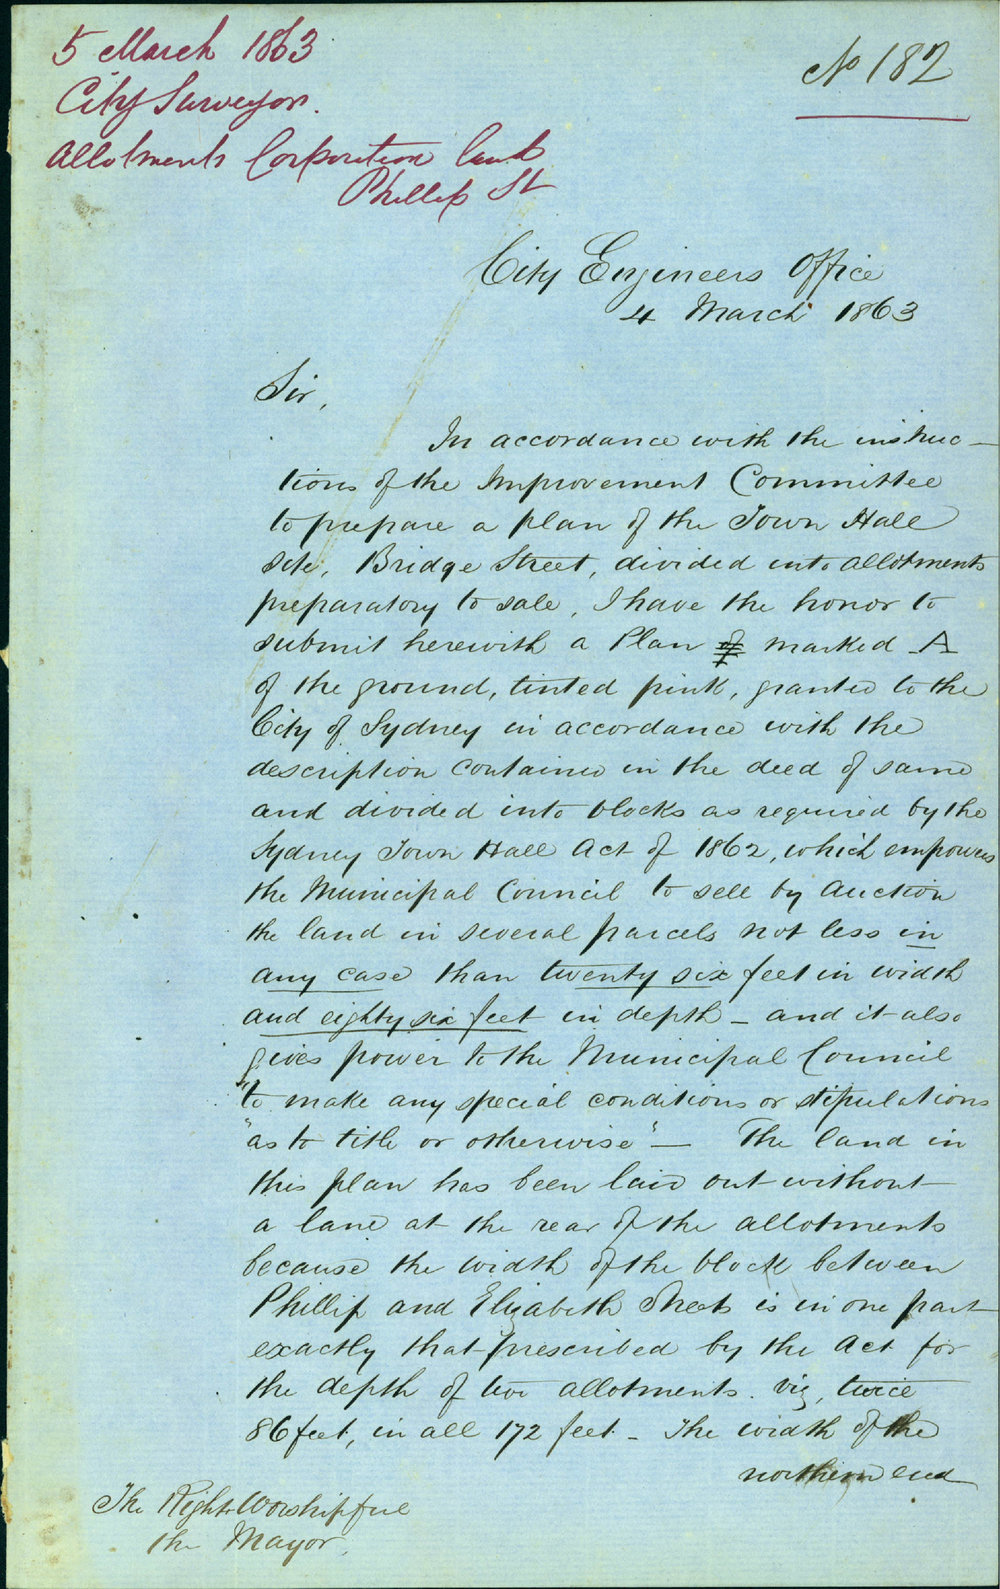 5 March 1863
City Surveyor.
Allotments Corporation land
Phillip St
No 182
City Engineers Office
4 March 1863
Sir,
In accordance with the instruc-
tions of the Improvement Committee
to prepare a plan of the Town Hall
site, Bridge Street, divided into allotments
preparatory to sale, I have the honor to
submit herewith a Plan of marked A
of the ground, tinted pink, granted to the
City of Sydney in accordance with the
description contained in the deed of same
and divided into blocks as required by the
Sydney Town Hall Act of 1862, which empowers
the Municipal Council to sell by Auction
the land in several parcels not less in
any case than twenty six feet in width
and eighty six feet in depth - and it also
gives power to the Municipal Council
"to make any special conditions or stipulations
"as to title or otherwise" - The land in
this plan has been laid out without
a lane at the rear of the allotments
because the width of the block between
Phillip and Elizabeth Streets is in one part
exactly that prescribed by the Act for
the depth of two allotments. viz, twice
86 feet, in all 172 feet - The width of the
northern end
The Right Worshipful
the Mayor.